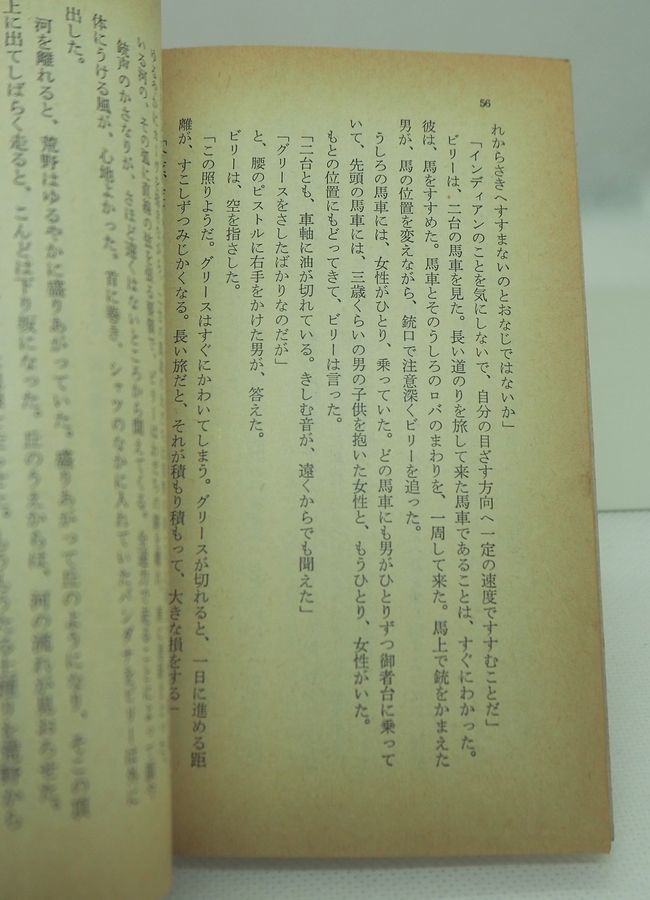 56
れからさきへすすまないのとおなじではないか」
「インディアンのことを気にしないで、自分の目ざす方向へ一定の速度ですすむことだ」
ビリーは、二台の馬車を見た。長い道のりを旅して来た馬車であることは、すぐにわかった。
彼は、馬をすすめた。馬車とそのうしろのロバのまわりを、一周して来た。馬上で銃をかまえた
男が、馬の位置を変えながら、銃口で注意深くビリーを追った。
うしろの馬車には、女性がひとり、乗っていた。どの馬車にも男がひとりずつ御者台に乗って
いて、先頭の馬車には、三歳くらいの男の子供を抱いた女性と、もうひとり、女性がいた。
もとの位置にもどってきて、ビリーは言った。
「二台とも、車軸に油が切れている。きしむ音が、遠くからでも聞えた」
「グリースをさしたばかりなのだが」
と、腰のピストルに右手をかけた男が、答えた。
ビリーは、空を指さした。
「この照りようだ。グリースはすぐにかわいてしまう。グリースが切れると、一日に進める距
離が、すこしずつみじかくなる。長い旅だと、それが積もり積もって、大きな損をする」
銃声のかさなりが、さほど遠くはないところから聞えてくる。
体にうける風が、心地よかった。首に巻き、シャツのなかに入れていたバンダナをビリーは
出した。
河を離れると、荒野はゆるやかに盛りあがっていた。盛りあがって丘のようになり、そこの頂
上に出てしばらく走ると、こんどは下り坂になった。丘のうえからは、河の流れが見おろせた。